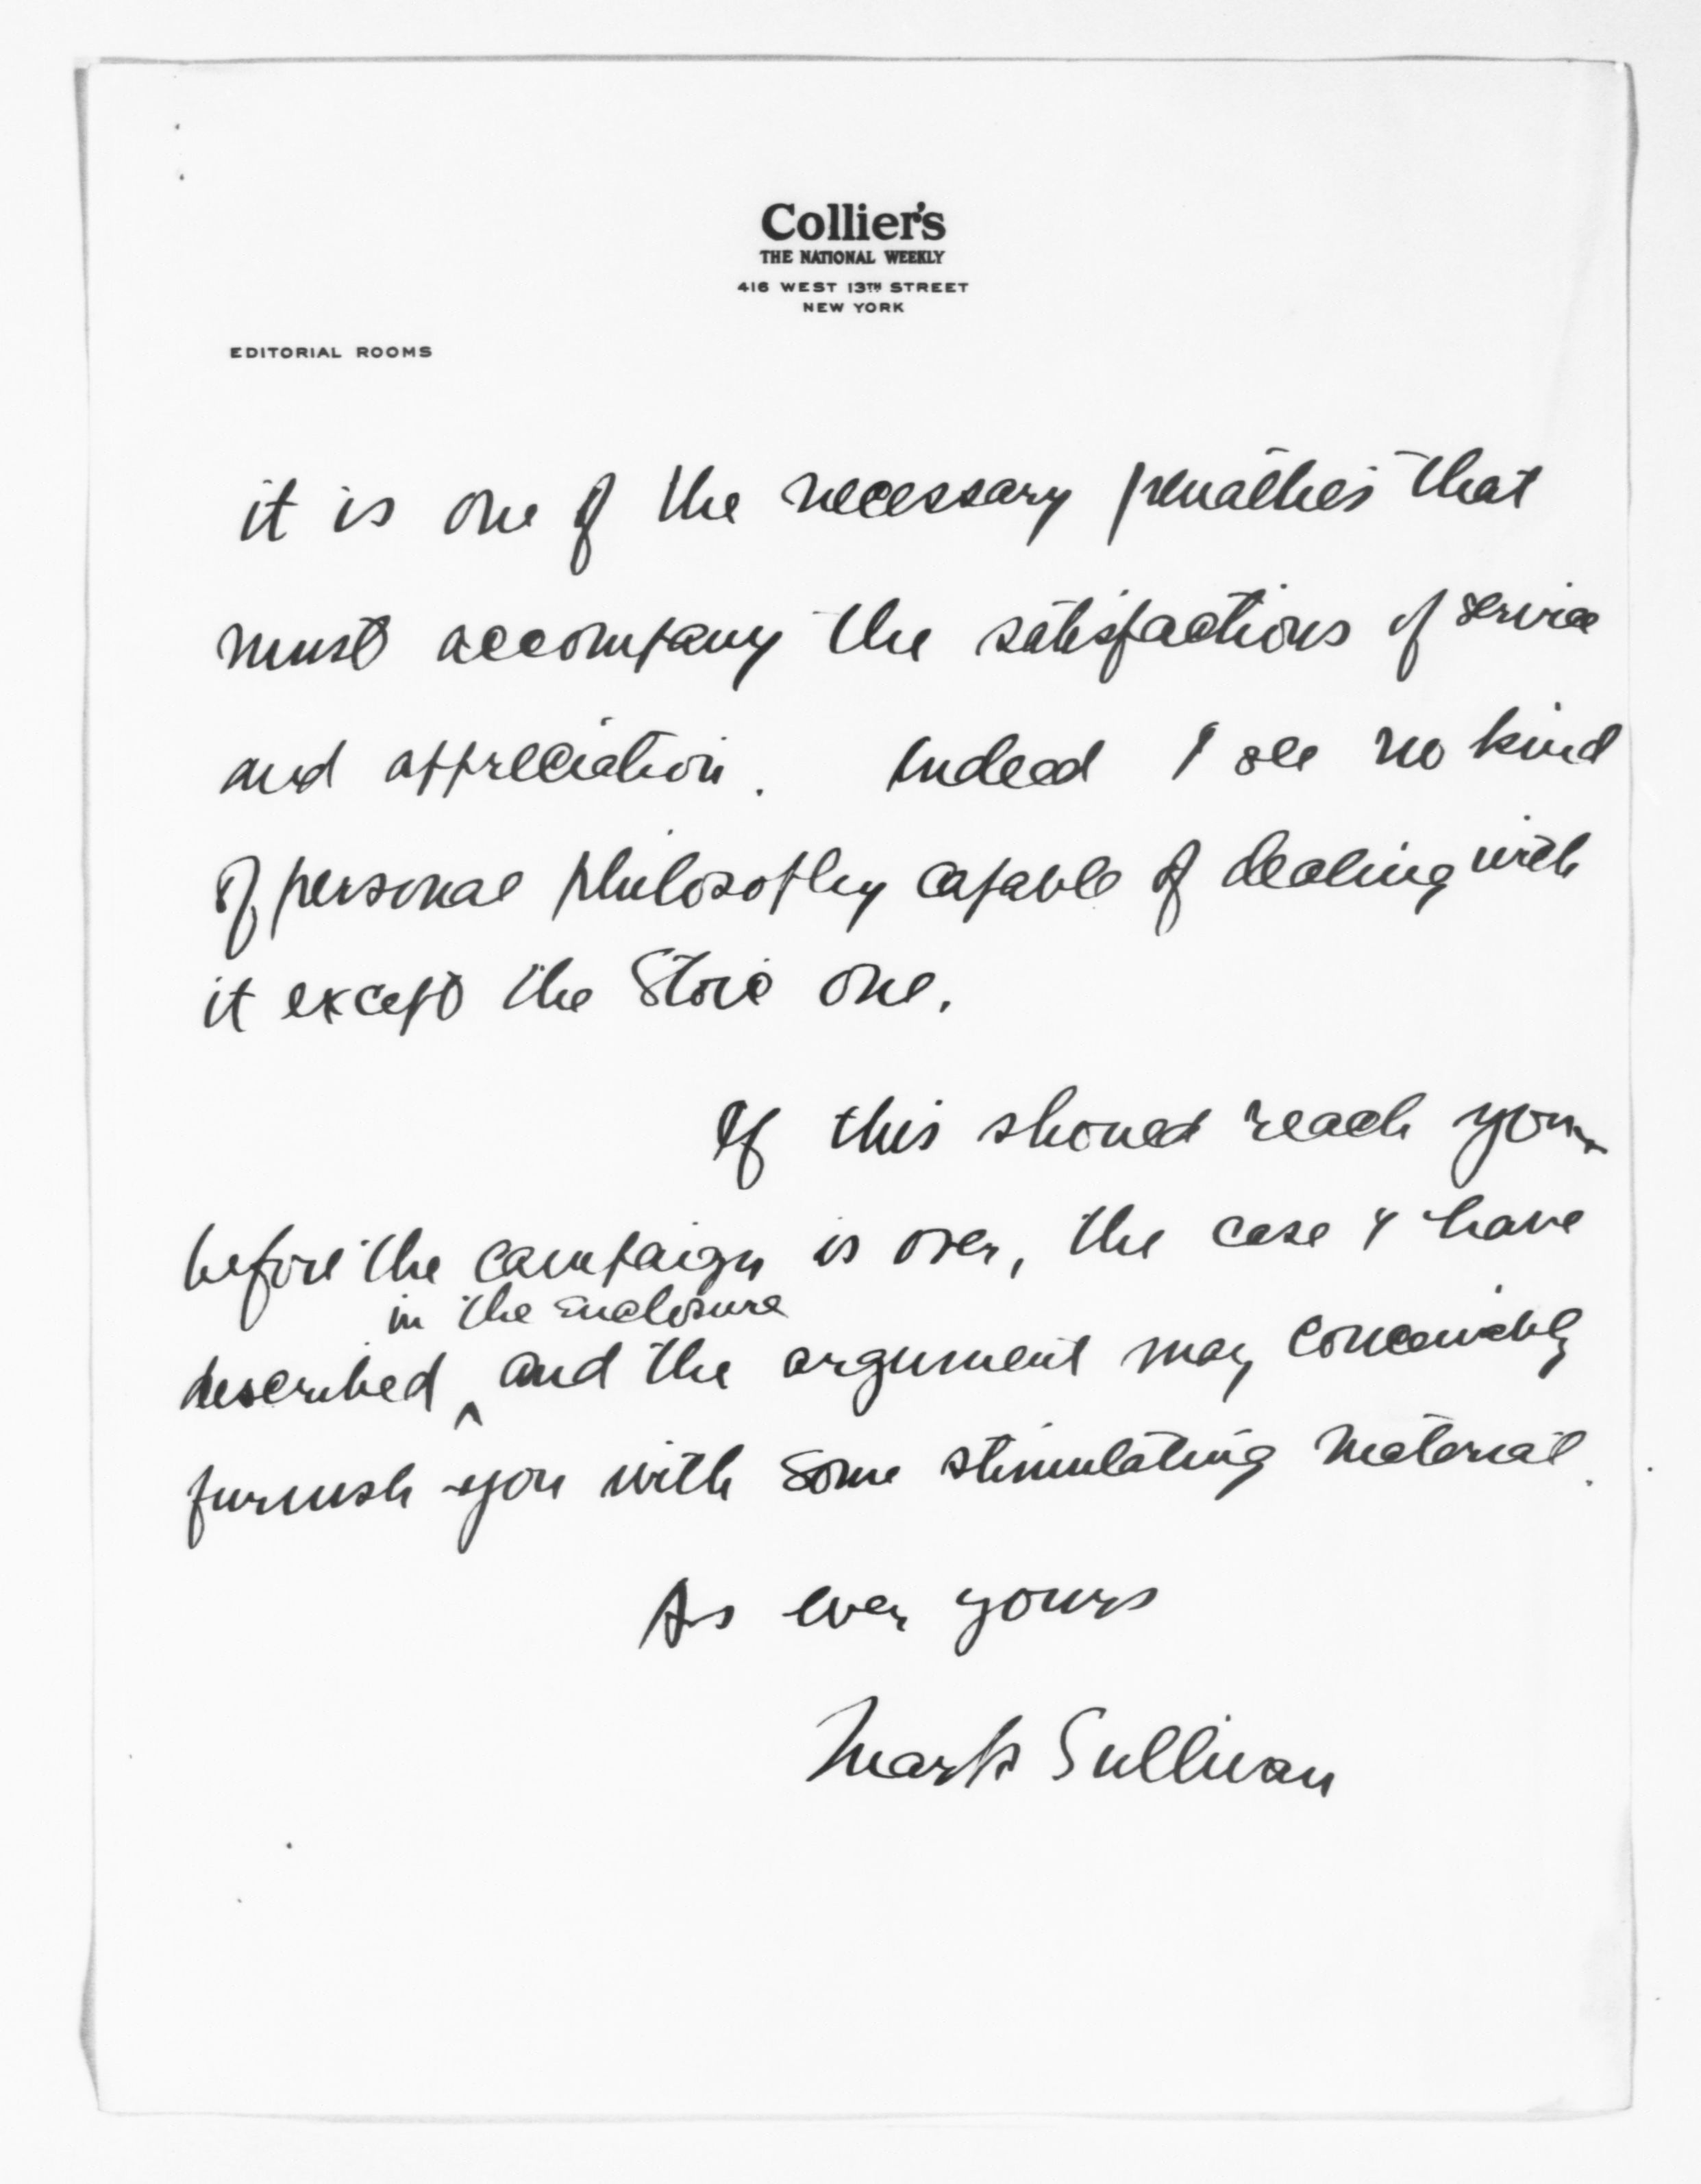 Collier's
THE NATIONAL WEEKLY
416 WEST 13TH STREET
NEW YORK
EDITORIAL ROOMS
it is one of the necessary penalties that
must accompany the satisfactions of service
and appreciation. Indeed I see no kind
of personal philosophy capable of dealing with
it except the Stoic one.
If this should reach you
before the campaign is over, the case I have
in the enclosure
described ^ and the argument may conceivably
furnish you with some stimulating material.
As ever yours
Mark Sullivan